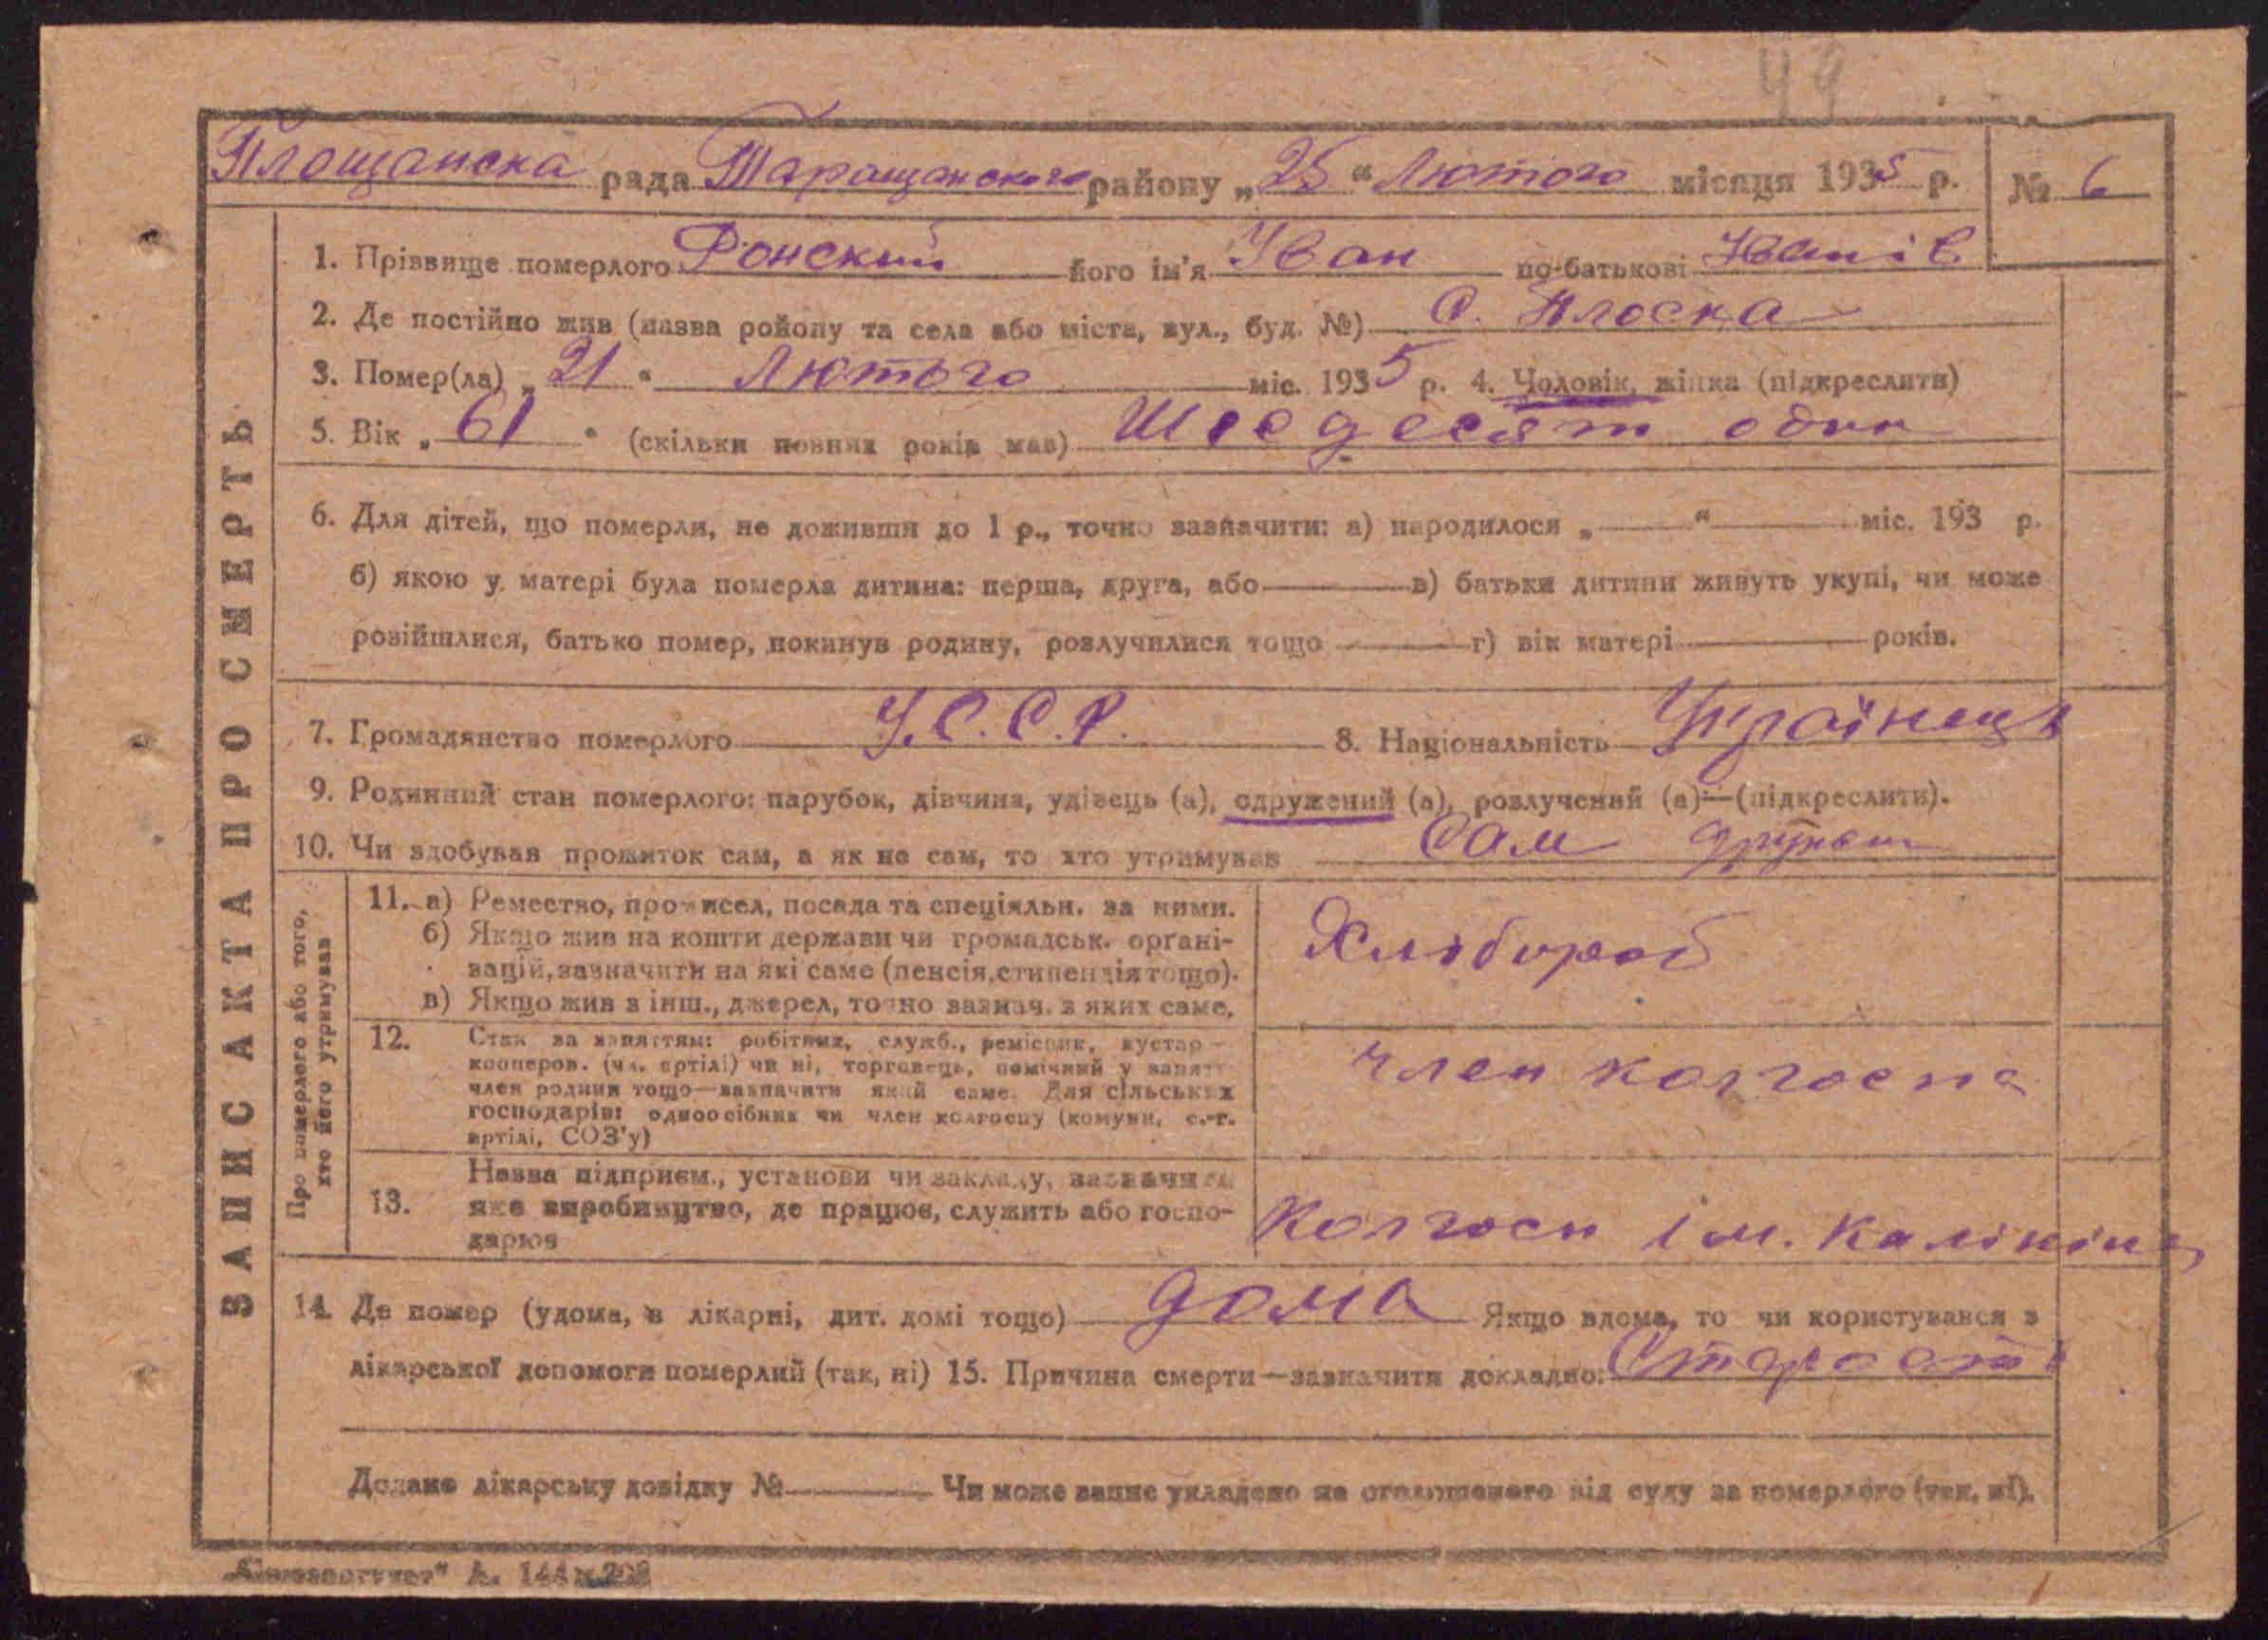 49
Площанска рада Таращанского району „25“ Лютого місяця 1935 р. № 6
ЗАПИС АКТА ПРО СМЕРТЬ
1. Прізвище померлого Фонский його ім'я Іван по-батькові Іванів
2. Де постійно жив (назва ройону та села або міста, вул., буд. №) С. Плоска
3. Помер(ла) „21“ Лютого міс. 1935 р. 4. Чоловік, жінка (підкреслити)
5. Вік „61“ (скільки повних років мав) Шісдесят один
6. Для дітей, що померли, не доживши до 1 р., точно зазначити: а) народилося „ “ міс. 193 р.
б) якою у матері була померла дитина: перша, друга, або в) батьки дитини живуть укупі, чи може
розійшлися, батько помер, покинув родину, розлучилися тощо г) вік матері років.
7. Громадянство померлого У.С.С.Р. 8. Національність Українець
9. Родинний стан померлого: парубок, дівчина, удівець (а), одружений (а), розлучений (а)—(підкреслити).
10. Чи здобував прожиток сам, а як не сам, то хто утримував Сам
Про померлого або того,
хто його утримував
11. а) Ремество, промисел, посада та спеціяльн. за ними.
б) Якщо жив на кошти держави чи громадськ. орґані-
зацій, зазначити на які саме (пенсія, стипендія тощо).
в) Якщо жив з інш., джерел, точно зазнач. з яких саме.
Хлібороб
12. Стан за заняттям: робітник, служб., ремісник, кустар -
кооперов. (чл. артілі) чи ні, торговець, помічний у занят
член родини тощо—зазначити який саме. Для сільських
господарів: одноосібник чи член колгоспу (комуни, с.-г.
артілі, СОЗ'у)
член колгоспа
13. Назва підприєм., установи чи закладу, зазначи
яке виробництво, де працює, служить або госпо-
дарює
Колгосп ім. Калініна
14. Де помер (удома, в лікарні, дит. домі тощо) дома Якщо вдома, то чи користувався з
лікарської допомоги померлий (так, ні) 15. Причина смерти—зазначити докладно: Старость
Додано лікарську довідку № Чи може запис укладено на оголошеного від суду за померлого (так, ні).